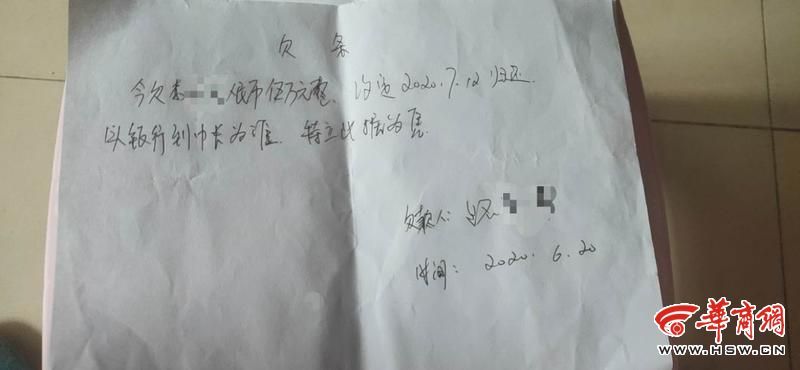 欠条
今欠李 人民币伍万元整. 约定2020.7.12归还.
以银行到帐为准. 特立此据为凭.
欠款人:
时间: 2020.6.20
华商网
WWW.HSW.CN